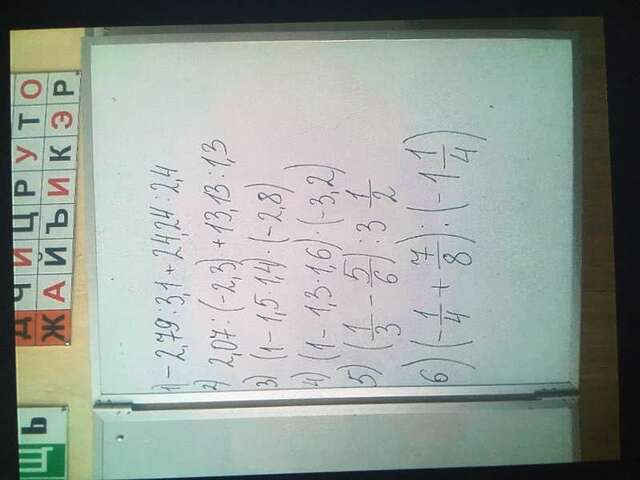 Щ Ь
Д Ч И Ц Р У Т О
Ж А Й Ъ И К Э Р
1) -2,79:3,1+24,24:2,4
2) 2,07:(-2,3)+13,13:1,3
3) (1-1,5·1,4)·(-2,8)
4) (1-1,3·1,6)·(-3,2)
5) (1/3 - 5/6):3 1/2
6) (-1/4 + 7/8):(-1 1/4)